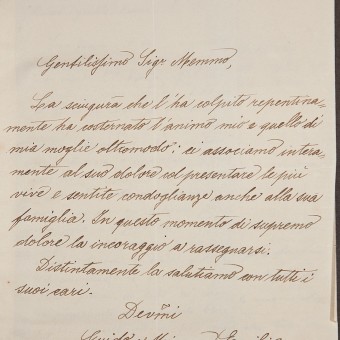 Gentilissimo Sigr Memmo,
La sciagura che l'ha colpito repentina-
mente ha costernato l'animo mio e quello di
mia moglie oltremodo; ci associamo intera-
mente al suo dolore col presentare le più
vive e sentite condoglianze anche alla sua
famiglia. In questo momento di supremo
dolore la incoraggio a rassegnarsi.
Distintamente la salutiamo con tutti i
suoi cari.
Devmi
Guido